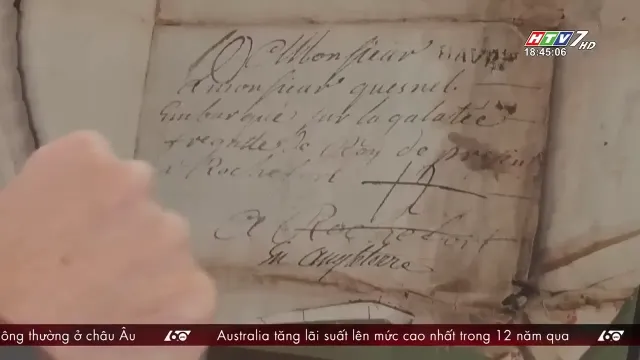 HTV7 HD
18:45:06
A Monsieur HAVRE
A monsieur quesnel
Embarqué sur la galatée
fregate le Roy de present
a Rochefort
A Rochefort
En Angleterre
ông thường ở châu Âu
60 Australia tăng lãi suất lên mức cao nhất trong 12 năm qua 60